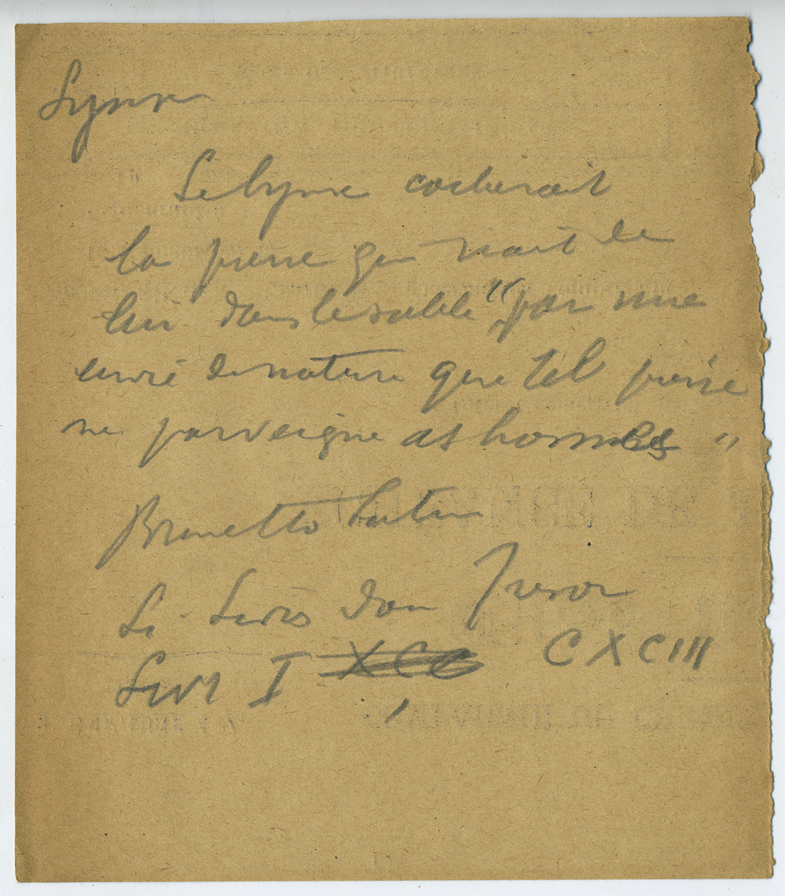 Lynx
Le lynx cacherait
la pierre qui nait de
lui dans le sable "par une
envie de nature que tel pierre
ne parveigne as hommes"
Brunetto Latini
Li Livres dou Tresor
Livre I CXCIII